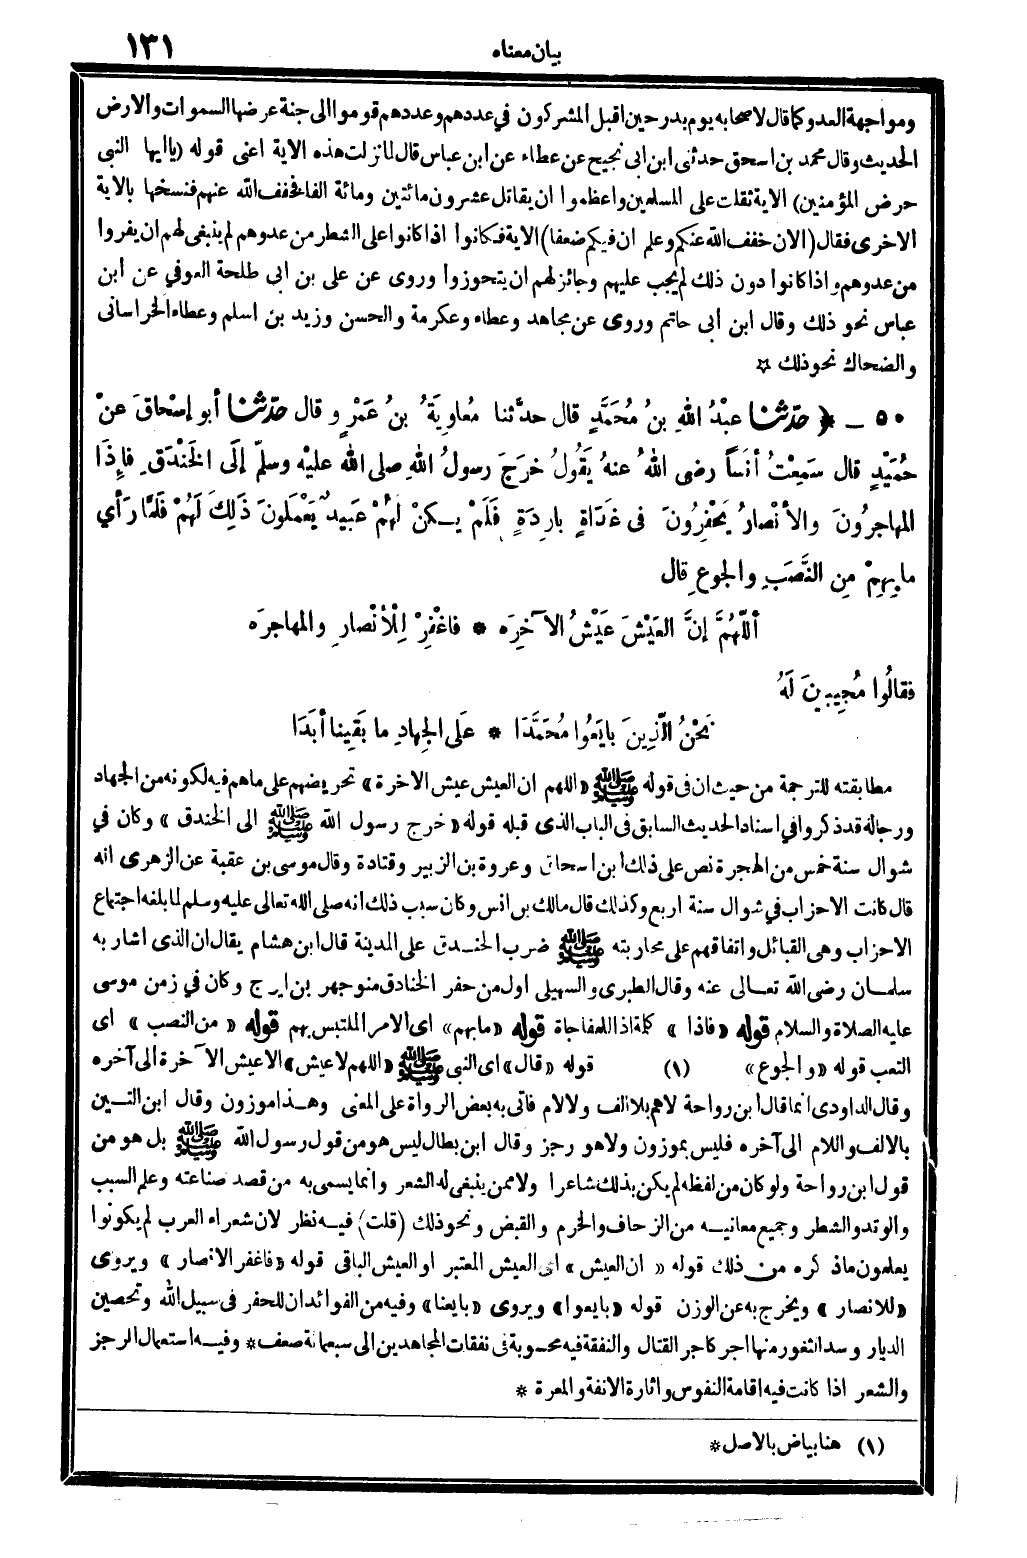 ١٣١
بيان معناه
ومواجهة العدو كما قال لاصحابه يوم بدر حين اقبل المشركون في عددهم وعددهم قوموا الى جنة عرضها السموات والارض
الحديث وقال محمد بن اسحق حدثني ابن ابى نجيح عن عطاء عن ابن عباس قال لما نزلت هذه الآية اعنى قوله (يا ايها النبي
حرض المؤمنين) الآية ثقلت على المسلمين واعظموا ان يقاتل عشرون مائتين ومائة الفا فخفف الله عنهم فنسخها بالاية
الاخرى فقال (الان خفف الله عنكم وعلم ان فيكم ضعفا) الآية فكانوا اذا كانوا على الشطر من عدوهم لم ينبغي لهم ان يفروا
من عدوهم واذا كانوا دون ذلك لم يجب عليهم وجائز لهم ان يتحوزوا وروى عن على بن ابى طلحة العوفي عن ابن
عباس نحو ذلك وقال ابن أبى حاتم وروى عن مجاهد وعطاء وعكرمة والحسن وزيد بن اسلم وعطاء الخراسانى
والضحاك نحو ذلك ☆
٥٠ – ﴿ حدّثنا عبْدُ اللهِ بنُ مُحَمَّدٍ قال حدثنا مُعاوِيَةُ بنُ عَمْرٍو قال حدّثنا أبو إسْحاقَ عنْ
حُمَيْدٍ قال سَمِعْتُ أنَساً رضى اللهُ عنهُ يَقُولُ خرَجَ رسولُ اللهِ صلى الله عليْه وسلّم إلَى الخَنْدَقِ فإِذَا
المهاجرُونَ والأنْصارُ يَحْفِرُونَ فى غَدَاةٍ بارِدَةٍ فَلَمْ يكنْ لَهُمْ عَبيدٌ يَعْمَلُونَ ذَلِكَ لَهُمْ فَلَمَّا رَأَي
مابِهِمْ مِنِ النَّصَبِ والجوعِ قال
أللّهُمَّ إنَّ العَيْشَ عَيْشُ الآخِرَه * فاغْفِرْ لِلْأنْصارِ والمهاجرَه
فقالُوا مُجِيبينَ لَهُ
نَحْنُ الّذِينَ بايَعُوا مُحَمَّدَا * عَلَى الجِهادِ ما بَقِينا أبَدَا
مطابقته للترجمة من حيث ان فى قوله ﷺ «اللهم ان العيش عيش الاخرة» تحريضهم على ما هم فيه لكونه من الجهاد
ورجاله قد ذكروا في اسناد الحديث السابق فى الباب الذى قبله قوله «خرج رسول الله ﷺ الى الخندق» وكان في
شوال سنة خمس من الهجرة نص على ذلك ابن اسحاق وعروة بن الزبير وقتادة وقال موسى بن عقبة عن الزهرى انه
قال كانت الاحزاب في شوال سنة اربع وكذلك قال مالك بن انس وكان سبب ذلك انه صلى الله تعالى عليه وسلم لما بلغه اجتماع
الاحزاب وهى القبائل واتفاقهم على محاربته ﷺ ضرب الخندق على المدينة قال ابن هشام يقال ان الذى اشار به
سلمان رضى الله تعالى عنه وقال الطبرى والسهيلى اول من حفر الخنادق منوجهر بن ايرج وكان في زمن موسى
عليه الصلاة والسلام قوله «فاذا» كلمة اذا للمفاجاة قوله «ما بهم» اى الامر الملتبس بهم قوله «من النصب» اى
التعب قوله «والجوع» (١) قوله «قال» اى النبى ﷺ «اللهم لا عيش» الا عيش الآخرة الى آخره
وقال الداودى انما قال ابن رواحة لاهم بلا الف ولا لام فاتى به بعض الرواة على المعنى وهذا موزون وقال ابن التين
بالالف واللام الى آخره فليس بموزون ولا هو رجز وقال ابن بطال ليس هو من قول رسول الله ﷺ بل هو من
قول ابن رواحة ولو كان من لفظه لم يكن بذلك شاعرا ولا ممن ينبغى له الشعر وانما يسمى به من قصد صناعته وعلم السبب
والوتد والشطر وجميع معانيه من الزحاف والخرم والقبض ونحو ذلك (قلت) فيه نظر لان شعراء العرب لم يكونوا
يعلمون ما ذكره من ذلك قوله «ان العيش» اى العيش المعتبر او العيش الباقى قوله «فاغفر الانصار» ويروى
«للانصار» ويخرج به عن الوزن قوله «بايعوا» ويروى «بايعنا» وفيه من الفوائد ان للحفر فى سبيل الله وتحصين
الديار وسد الثغور منها اجر كاجر القتال والنفقة فيه محسوبة فى نفقات المجاهدين الى سبعمائة ضعف* وفيه استعمال الرجز
والشعر اذا كانت فيه اقامة النفوس واثارة الانفة والمعرة *
(١) هنا بياض بالاصل*